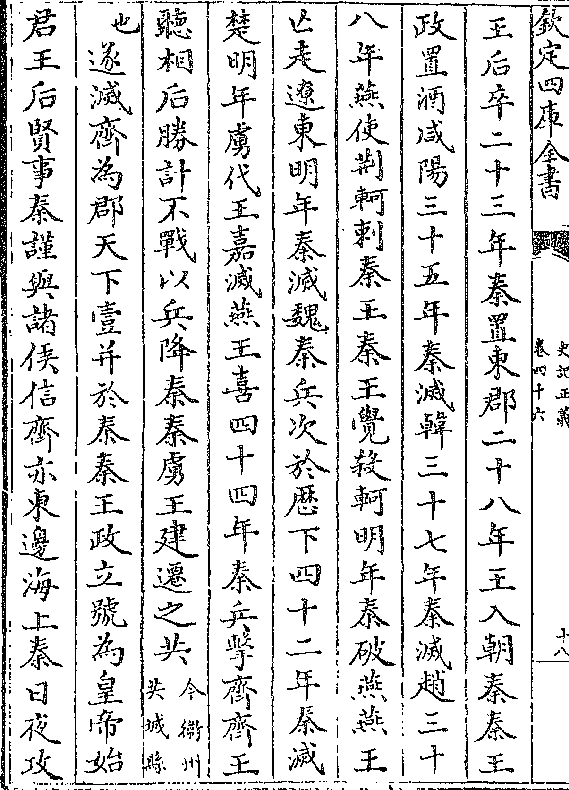 欽定四庫全書
史記正義
卷四十六
十八
王后卒二十三年秦置東郡二十八年王入朝秦秦王
政置酒咸陽三十五年秦滅韓三十七年秦滅趙三十
八年燕使荆軻刺秦王秦王覺殺軻明年秦破燕燕王
亡走遼東明年秦滅魏秦兵次於歴下四十二年秦滅
楚明年虜代王嘉滅燕王喜四十四年秦兵擊齊齊王
聽相后勝計不戰以兵降秦秦虜王建遷之共今衛州共城縣
也遂滅齊為郡天下壹并於秦秦王政立號為皇帝始
君王后賢事秦謹與諸侯信齊亦東邊海上秦日夜攻